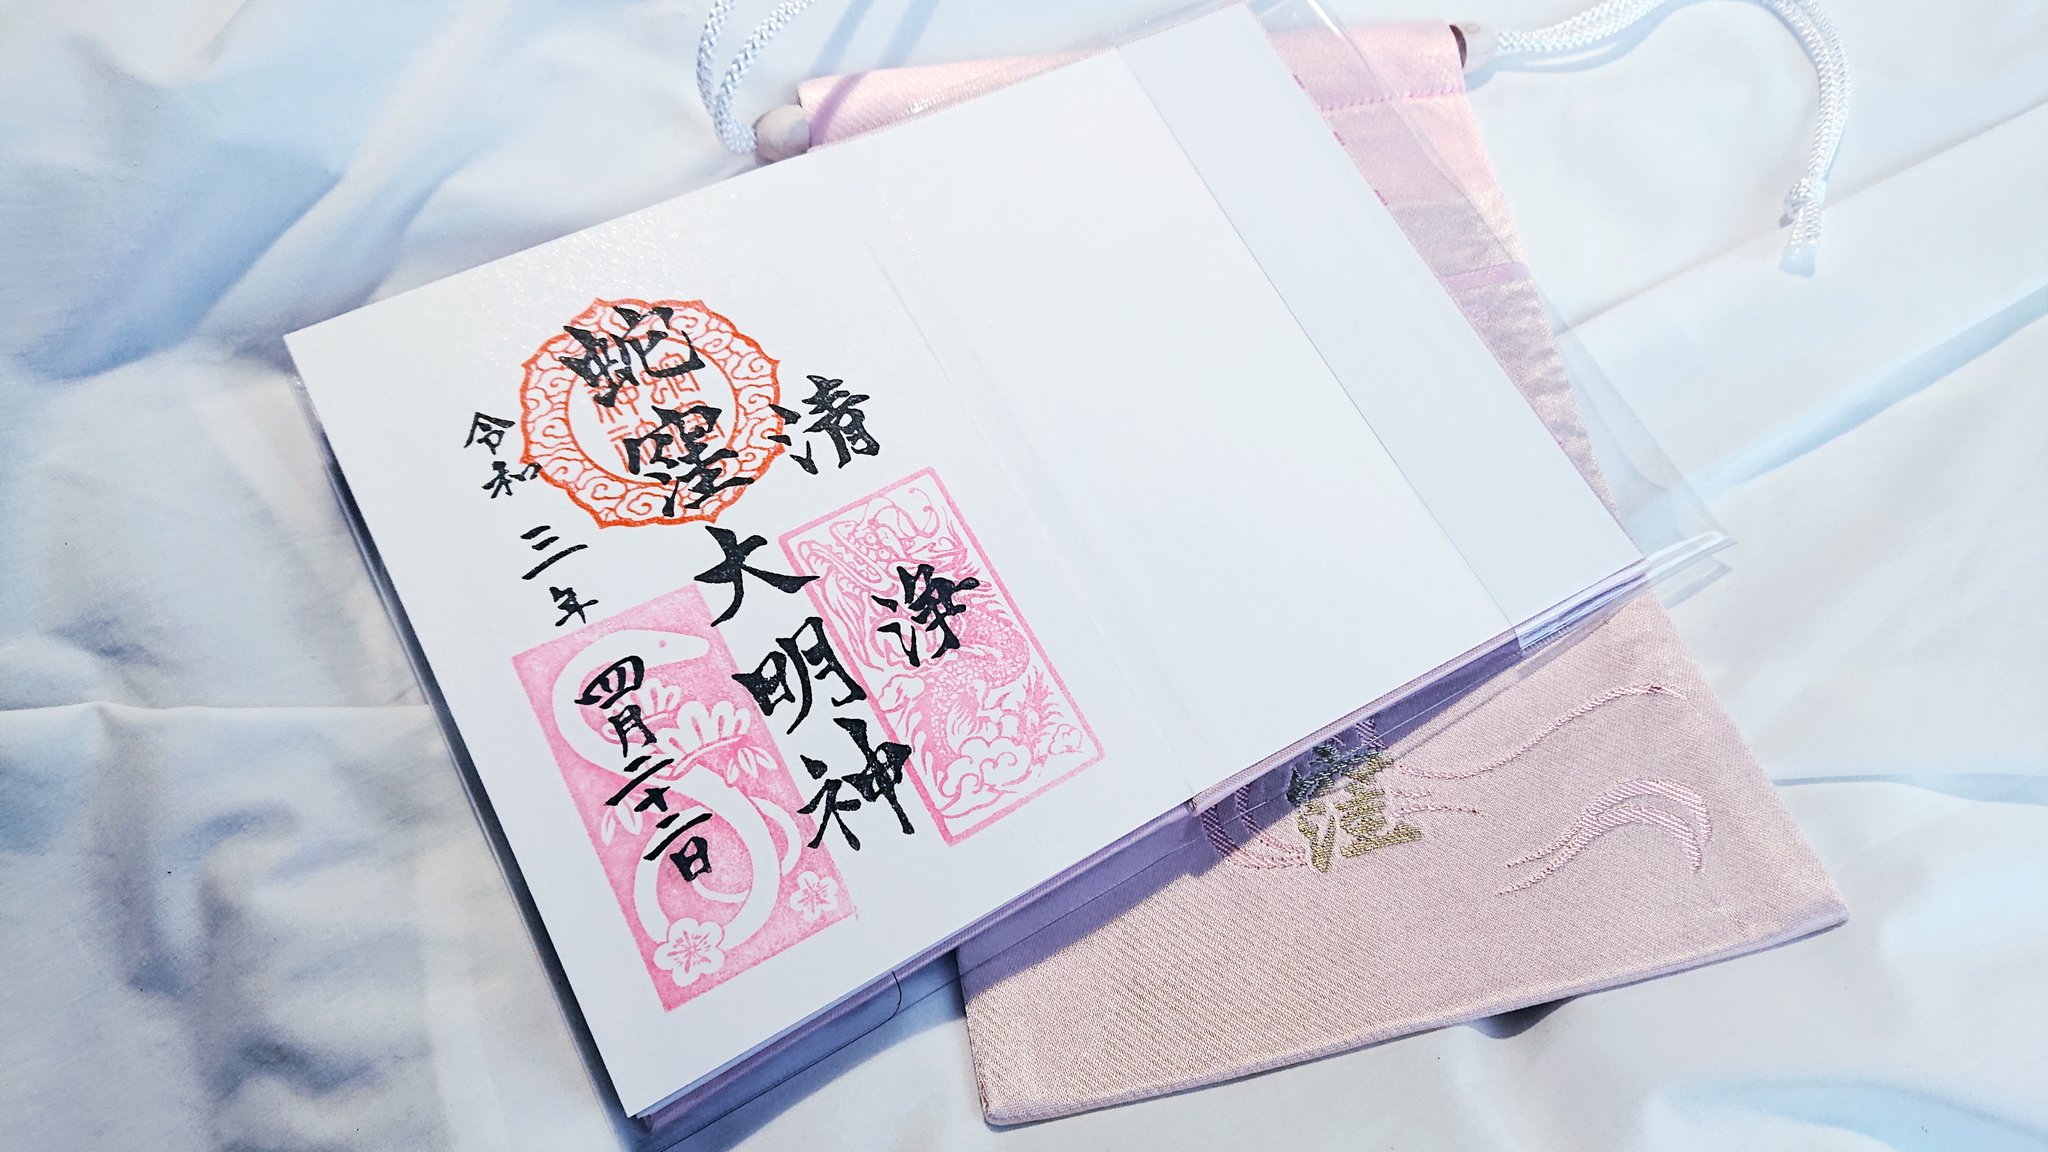 清浄
蛇窪大明神
令和三年四月二十二日
窪